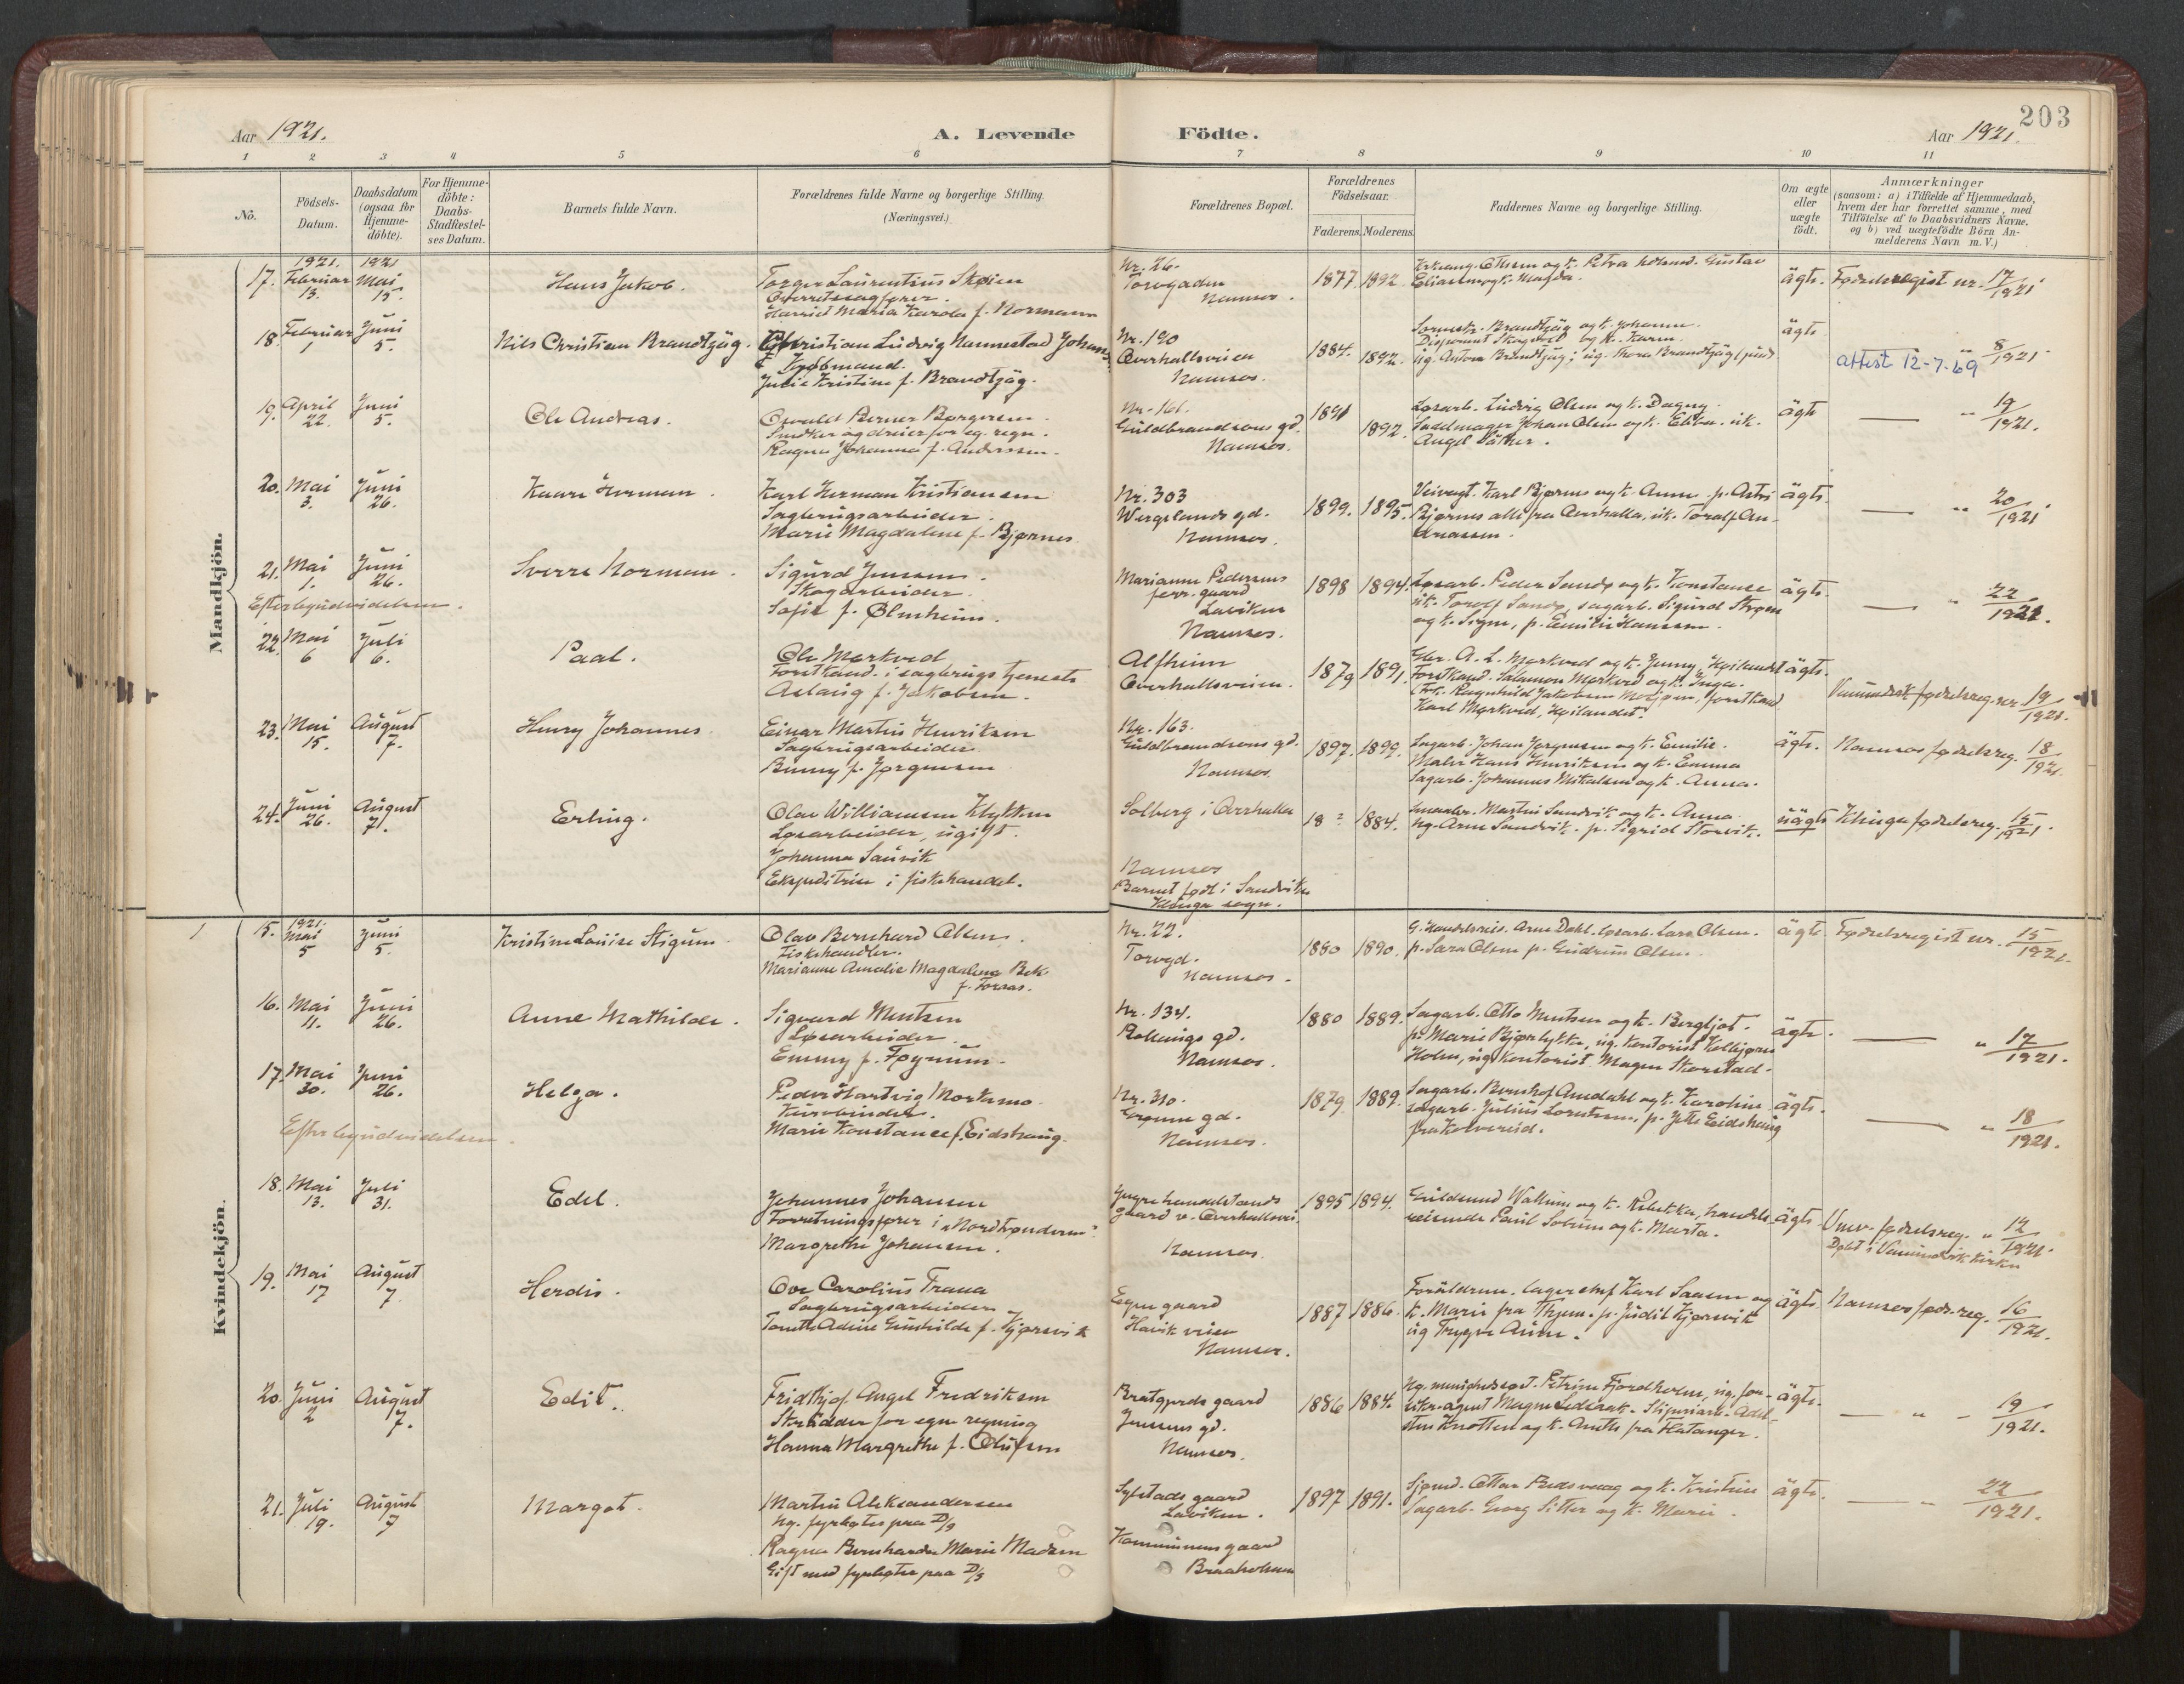 203
Aar 1921.
A. Levende Födte.
Aar 1921.
1 2 3 4 5 6 7 8 9 10 11
No.
Födsels-
Datum.
Daabsdatum
(ogsaa for
Hjemme-
döbte).
For Hjemme-
döbte:
Daabs-
Stadfæstel-
ses Datum.
Barnets fulde Navn.
Forældrenes fulde Navne og borgerlige Stilling.
(Næringsvei.)
Forældrenes Bopæl.
Forældrenes
Födselsaar.
Faderens. Moderens.
Faddernes Navne og borgerlige Stilling.
Om ægte
eller
uægte
födt.
Anmærkninger
(saasom: a) i Tilfælde af Hjemmedaab,
hvem der har forrettet samme, med
Tilföielse af to Daabsvidners Navne.
og b) ved uægtefödte Börn An-
melderens Navn m. V.)
Mandkjön.
1921. 1921
17. Februar 13. Mai 15. Hans Jakob.
Torger Laurentius Skøien
Overretssagfører.
Harriet Maria Karola f. Normann
Nr. 26.
Torvgaden
Namsos.
1877 1892.
Ottesen og k. Petra Gustav
Eliassen og k. Magda.
ägte. Fødselsregist nr. 17/1921
18. Februar 1 Juni 5. Nils Christian Brandtzäg.
Christian Ludvig Namnestad Johansen
Kjøbmand.
Julie Kristine f. Brandtzäg.
Nr. 190
Overhallsveien
Namsos.
1884. 1892.
Brandtzäg og k. Johanne.
Disponent Skogseth og k. Karen.
ug. Anton Brandtzäg, ug. Thora Brandtzäg
ägte " 8/1921
Attest 12-7-69
19. April 22. Juni 5. Ole Andreas.
Osvald Berner Borgersen
Snedker og dreier for eg. regn.
Ragna Johanna f. Anderssen.
Nr. 161.
Guldbrandsons gd.
Namsos.
1891 1892.
Løsarb. Ludvig Olsen og k. Dagny.
Sadelmager Johan Olsen og k. Ellen. uk.
Angel Säther.
ägte " 19/1921.
20. Mai 3. Juni 26. Kaare Herman.
Karl Herman Kristiansen
Sagbrugsarbeider.
Marie Magdalene f. Bjørnes.
Nr. 303
Wergelands gd.
Namsos.
1899. 1895.
Veivogt. Karl Bjørnes og k. Anna. p. Astri
Bjørnes alle fra Overhalla, uk. Toralf An-
dreassen.
ägte. " 20/1921
21. Mai 1. Juni 26. Sverre Norman.
Efter bynudvidelsen.
Sigurd Jensen.
Skogarbeider.
Sofie f. Olmheim.
Marianne Pedersens
gaard
Laviken
Namsos.
1898 1894.
Løsarb. Peder Sandø og k. Konstanse
uk. Torolf Sandø, sagarb. Sigurd Strøm
og k. Signe, p. Emilie Hanssen.
ägte. " 22/1921.
22. Mai 6 Juli 6. Paal.
Ole Mørkved
Forstkand. i sagbrugs tjeneste
Aslaug f. Jakobsen.
Alfheim
Overhallsveien.
1879 1891.
A. L. Mørkved og k. Jenny, Høilandet
Forstkand. Salamon Mørkved og k. Inga.
Frk. Ragnhild Jakobsen Mosjøen, forstkand.
Karl Mørkved, Høilandet.
ägte. Vemundvik fødselsreg. nr. 19/1921.
23. Mai 15. August 7. Henry Johannes
Einar Martin Henriksen
Sagbrugsarbeider
Binny f. Jørgensen
Nr. 163.
Guldbrandsons gd.
Namsos.
1897. 1899.
Sagarb. Johan Jørgensen og k. Emilie.
Maler Hans Henriksen og k. Emma
Sagarb. Johannes Mikalsen og k. Anna.
ägte. Namsos fødselsreg. 18/1921.
24. Juni 26. August 7. Erling.
Olav Williamsen Klykken
Løsarbeider, ugift.
Johanna Saüvik
Ekspeditrise i fiskehandel.
Solberg i Overhalla
Namsos
Barnet født i Sandviken
Klinga sogn.
18 ? 1884.
Martin Sandvik og k. Anna
ug. Arne Sandvik. p. Sigrid Storvik.
uägte Klinga fødselsreg. 15/1921.
Kvindekjön.
1
15. 1921. Mai 5 Juni 5. Kristine Louise Stigum
Olav Bernhard Olsen.
Fiskehandler.
Marianne Amalie Magdalena Bek
f. Torsas.
Nr. 22.
Torvgd.
Namsos.
1880 1890.
G. Handelsreis. Arne Dahl. Løsarb. Lars Olsen.
p. Sara Olsen p. Gudrun Olsen.
ägte. Fødselsregist nr. 15/1921.
16. Mai 11. Juni 26. Anne Mathilde.
Sigvard Mentzen
Løsarbeider
Emmy f. Føynum.
Nr. 134.
gd.
Namsos.
1880 1889.
Sagarb. Otto Mentsen og k. Bergljot.
p. Marie Bjørlykke, ug. kontorist Kolbjørn
Holm, ug. kontorist Magne Skorstad.
ägte. " 17/1921.
17. Mai 30. Juni 26. Helga.
Efter bynudvidelsen.
Peder Hartvig Mortsmo
Marie Konstanse f. Eidshaug.
Nr. 310.
gd.
Namsos.
1879 1889.
Sagarb. Bernhof Amdahl og k. Karoline
sagarb. Julius Lorntsen, p. Jette Eidshaug
fra Kolvereid.
ägte. " 18/1921.
18. Mai 13. Juli 31. Edel.
Johannes Johansen
Forretningsfører i "Nordtrønderen"
Margrethe Johansen.
Yngre handelstands
gaard v. Overhallsvei.
Namsos.
1895 1894.
Guldsmed Wallum og k. Rebekka, handels-
reisende Paul Solum og k. Marta.
ägte Vmv. fødselsreg. " 12/1921.
Døbt i Vemundvik kirke
19. Mai 17 August 7 Herdis.
Ove Carolius Frana
Sagbrugsarbeider
Adine Gunhilde f. Kjørsvik
Egen gaard
Havik veien
Namsos.
1887 1886.
Foräldrene. Karl Saasen og
k. Marie fra Thjem. p. Judit Kjørsvik
ug Trygve Aune.
ägte. Namsos føds. reg. 16/1921.
20. Juni 2 August 7. Edit.
Fridthjof Angel Fredriksen
Skrädder for egen regning
Hanna Margrethe f. Olufsen
Bratgjerds gaard
Jensens gd.
Namsos.
1886 1884.
Ng. menighedssøst. Petrine Fjordholm, ug. for-
sikr. agent Magne Sellæk. Stipriarb. Adel-
sten Knotten og k. Anette fra Flatanger.
ägte. " 19/1921.
21. Juli 19. August 7 Margot.
Martin Aleksandersen
Ug. fyrbøter paa D/S
Ragna Bernharda Marie Madsen
Gift med fyrbøter paa D/S
Sylstads gaard
Laviken.
Kommunens gaard
Braaholmen
1897 1891.
Sjømd. Ottar Pedersvaag og k. Kristine
Sagarb. Georg Sitter og k. Marie.
ägte. " 22/1921.